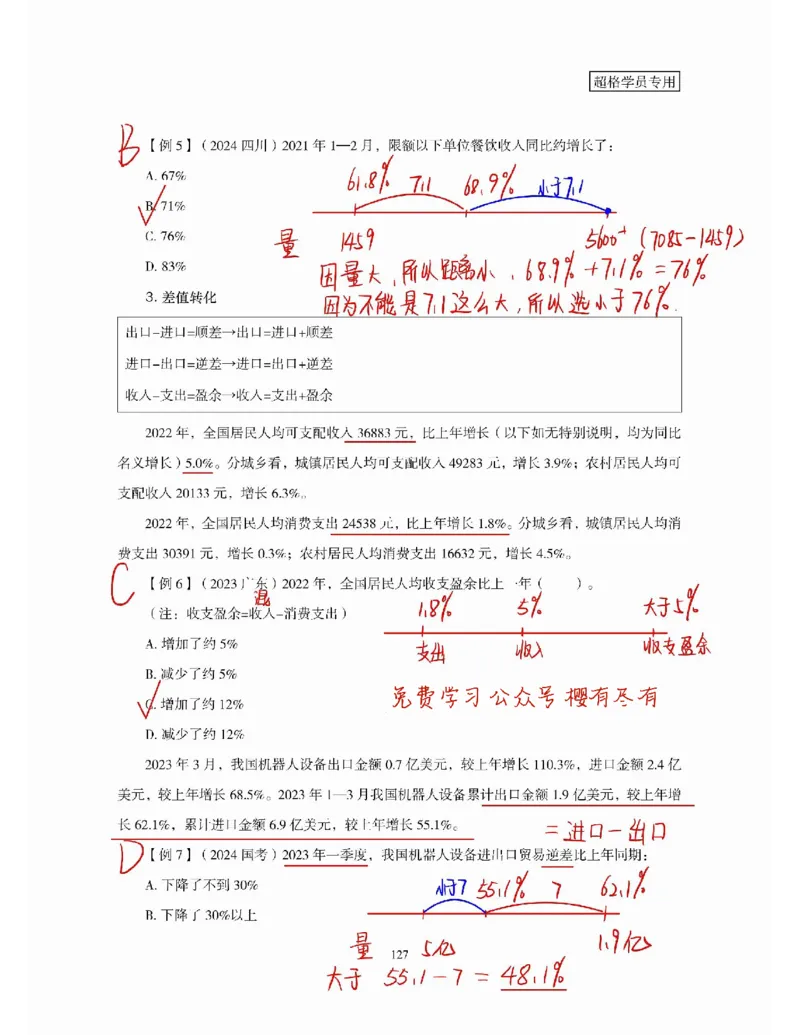 超格学员专用
B 【例 5】（2024 四川）2021 年 1—2 月，限额以下单位餐饮收入同比约增长了：
A. 67%
61.8% 7.1 68.9% 小于7.1
B. 71%
C. 76%
量 1459 5600+ (7085-1459)
D. 83%
因量大，所以距离小，68.9%+7.1%=76%
因为不能是7.1这么大，所以选小于76%.
3. 差值转化
出口-进口=顺差→出口=进口+顺差
进口-出口=逆差→进口=出口+逆差
收入-支出=盈余→收入=支出+盈余
2022 年，全国居民人均可支配收入 36883 元，比上年增长（以下如无特别说明，均为同比
名义增长）5.0%。分城乡看，城镇居民人均可支配收入 49283 元，增长 3.9%；农村居民人均可
支配收入 20133 元，增长 6.3%。
2022 年，全国居民人均消费支出 24538 元，比上年增长 1.8%。分城乡看，城镇居民人均消
费支出 30391 元，增长 0.3%；农村居民人均消费支出 16632 元，增长 4.5%。
C 【例 6】（2023 广东）2022 年，全国居民人均收支盈余比上一年（ ）。
混
1.8% 5% 大于5%
（注：收支盈余=收入-消费支出）
A. 增加了约 5%
支出 收入 收支盈余
B. 减少了约 5%
免费学习公众号樱有尽有
C. 增加了约 12%
D. 减少了约 12%
2023 年 3 月，我国机器人设备出口金额 0.7 亿美元，较上年增长 110.3%，进口金额 2.4 亿
美元，较上年增长 68.5%。2023 年 1—3 月我国机器人设备累计出口金额 1.9 亿美元，较上年增
长 62.1%，累计进口金额 6.9 亿美元，较上年增长 55.1%。
=进口-出口
D 【例 7】（2024 国考）2023 年一季度，我国机器人设备进出口贸易逆差比上年同期：
A. 下降了不到 30%
小于7 55.1% 7 62.1%
B. 下降了 30%以上
量 5亿 1.9亿
127
大于 55.1-7=48.1%